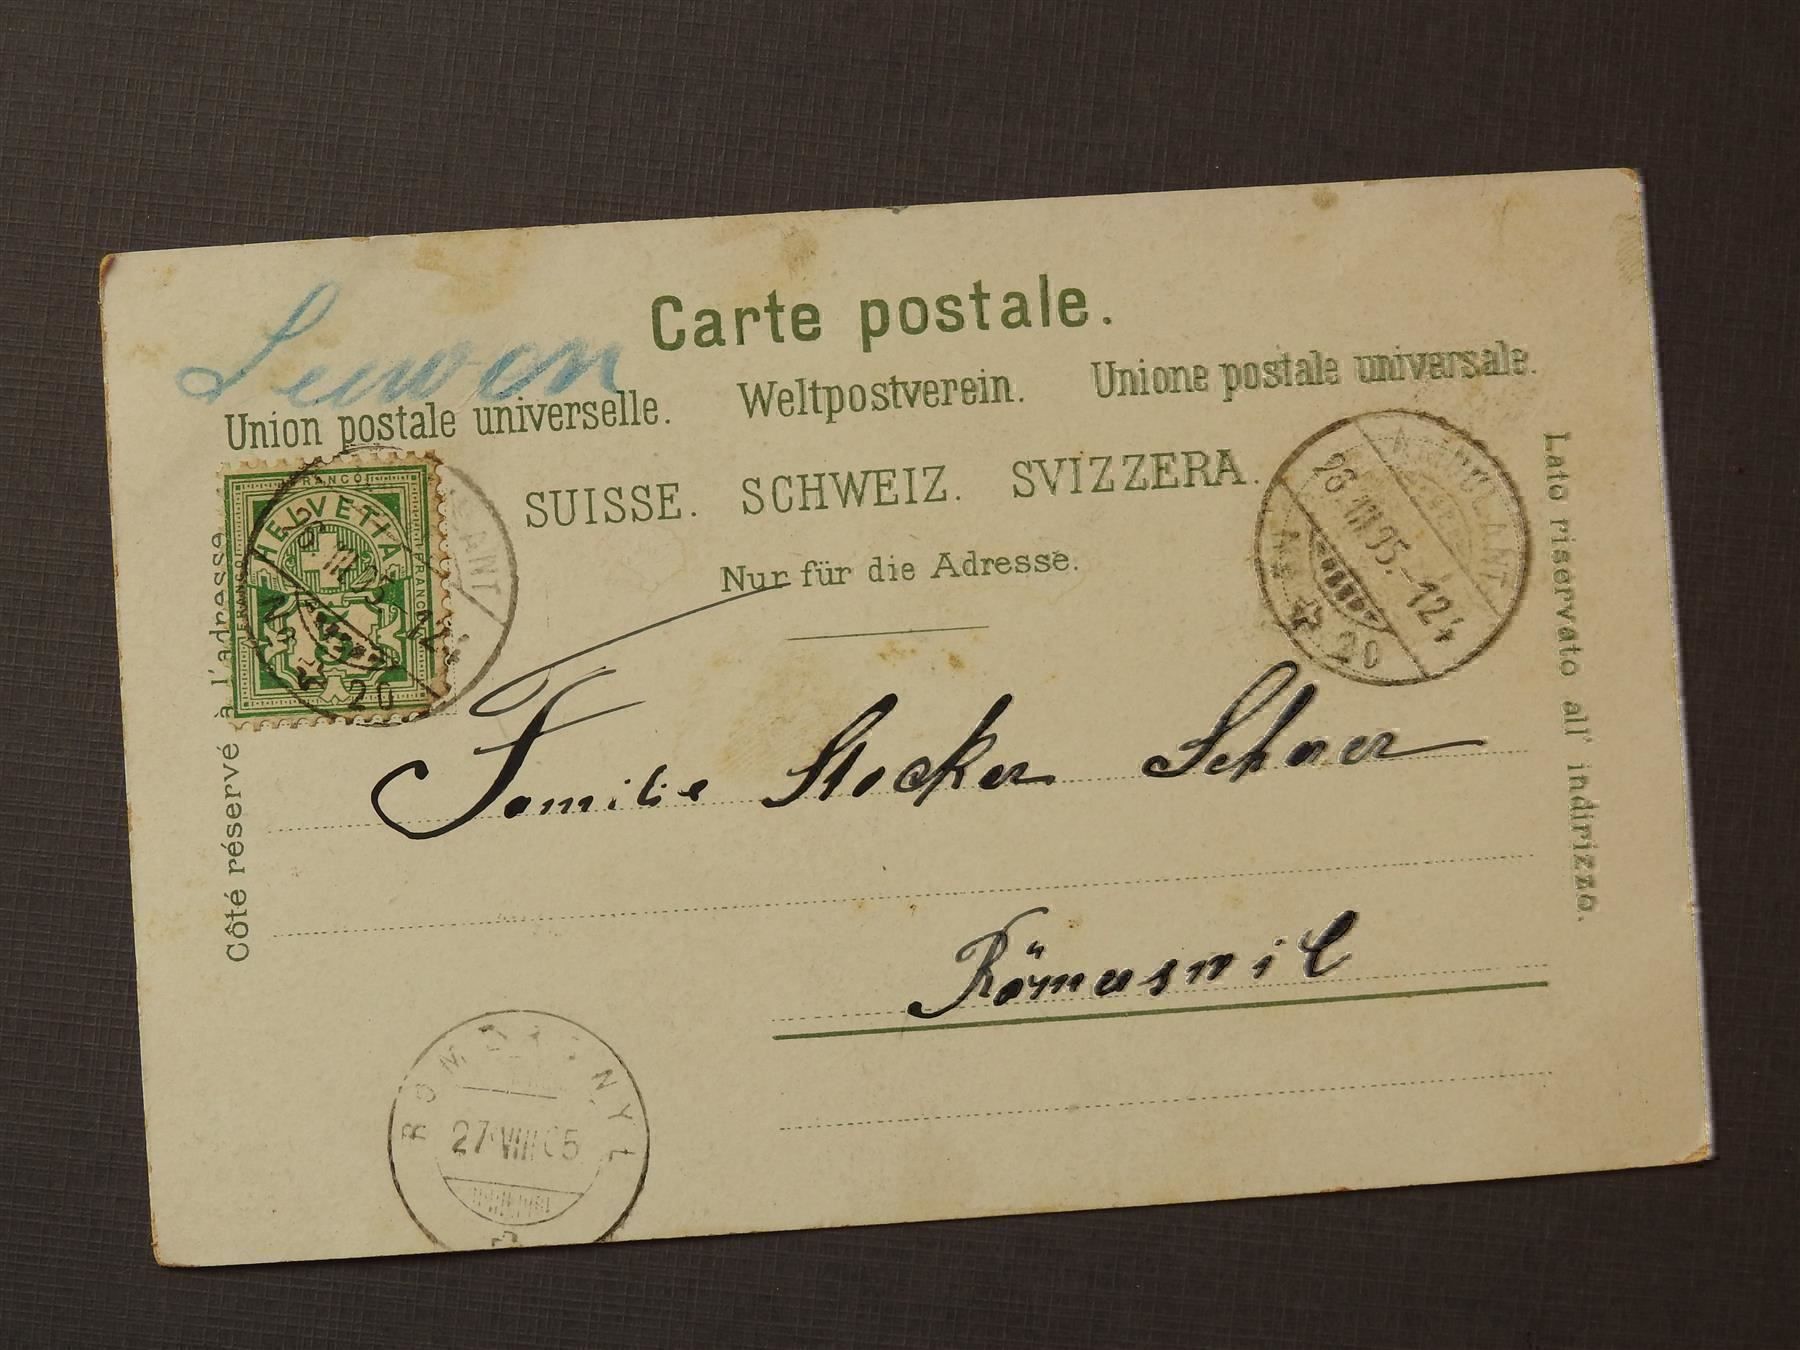 Carte postale.
Union postale universelle. Weltpostverein. Unione postale universale.
SUISSE. SCHWEIZ. SVIZZERA.
Nur für die Adresse.
Côté réservé à l'adresse
Lato riservato all' indirizzo.
FRANCO
HELVETIA
FRANCO
FRANCO
AMBULANT
20
Familie Stocker Schaer
Römerswil
27 VIII 05